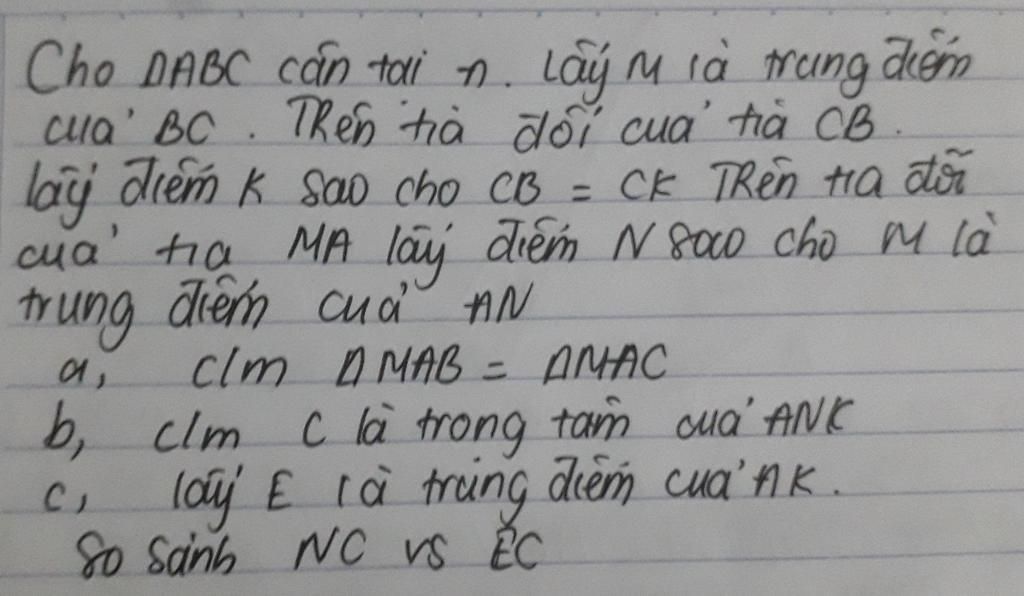 Cho ΔABC cân tai A. Lấy M là trung điểm
của BC. Trên tia đối của tia CB.
lấy điểm K sao cho CB = CK Trên tia đối
của tia MA lấy điểm N sao cho M là
trung điểm của AN
a, c/m ΔMAB = ΔMAC
b, c/m C là trong tâm của ANK
c, lấy E là trung điểm của AK.
So sánh NC vs EC